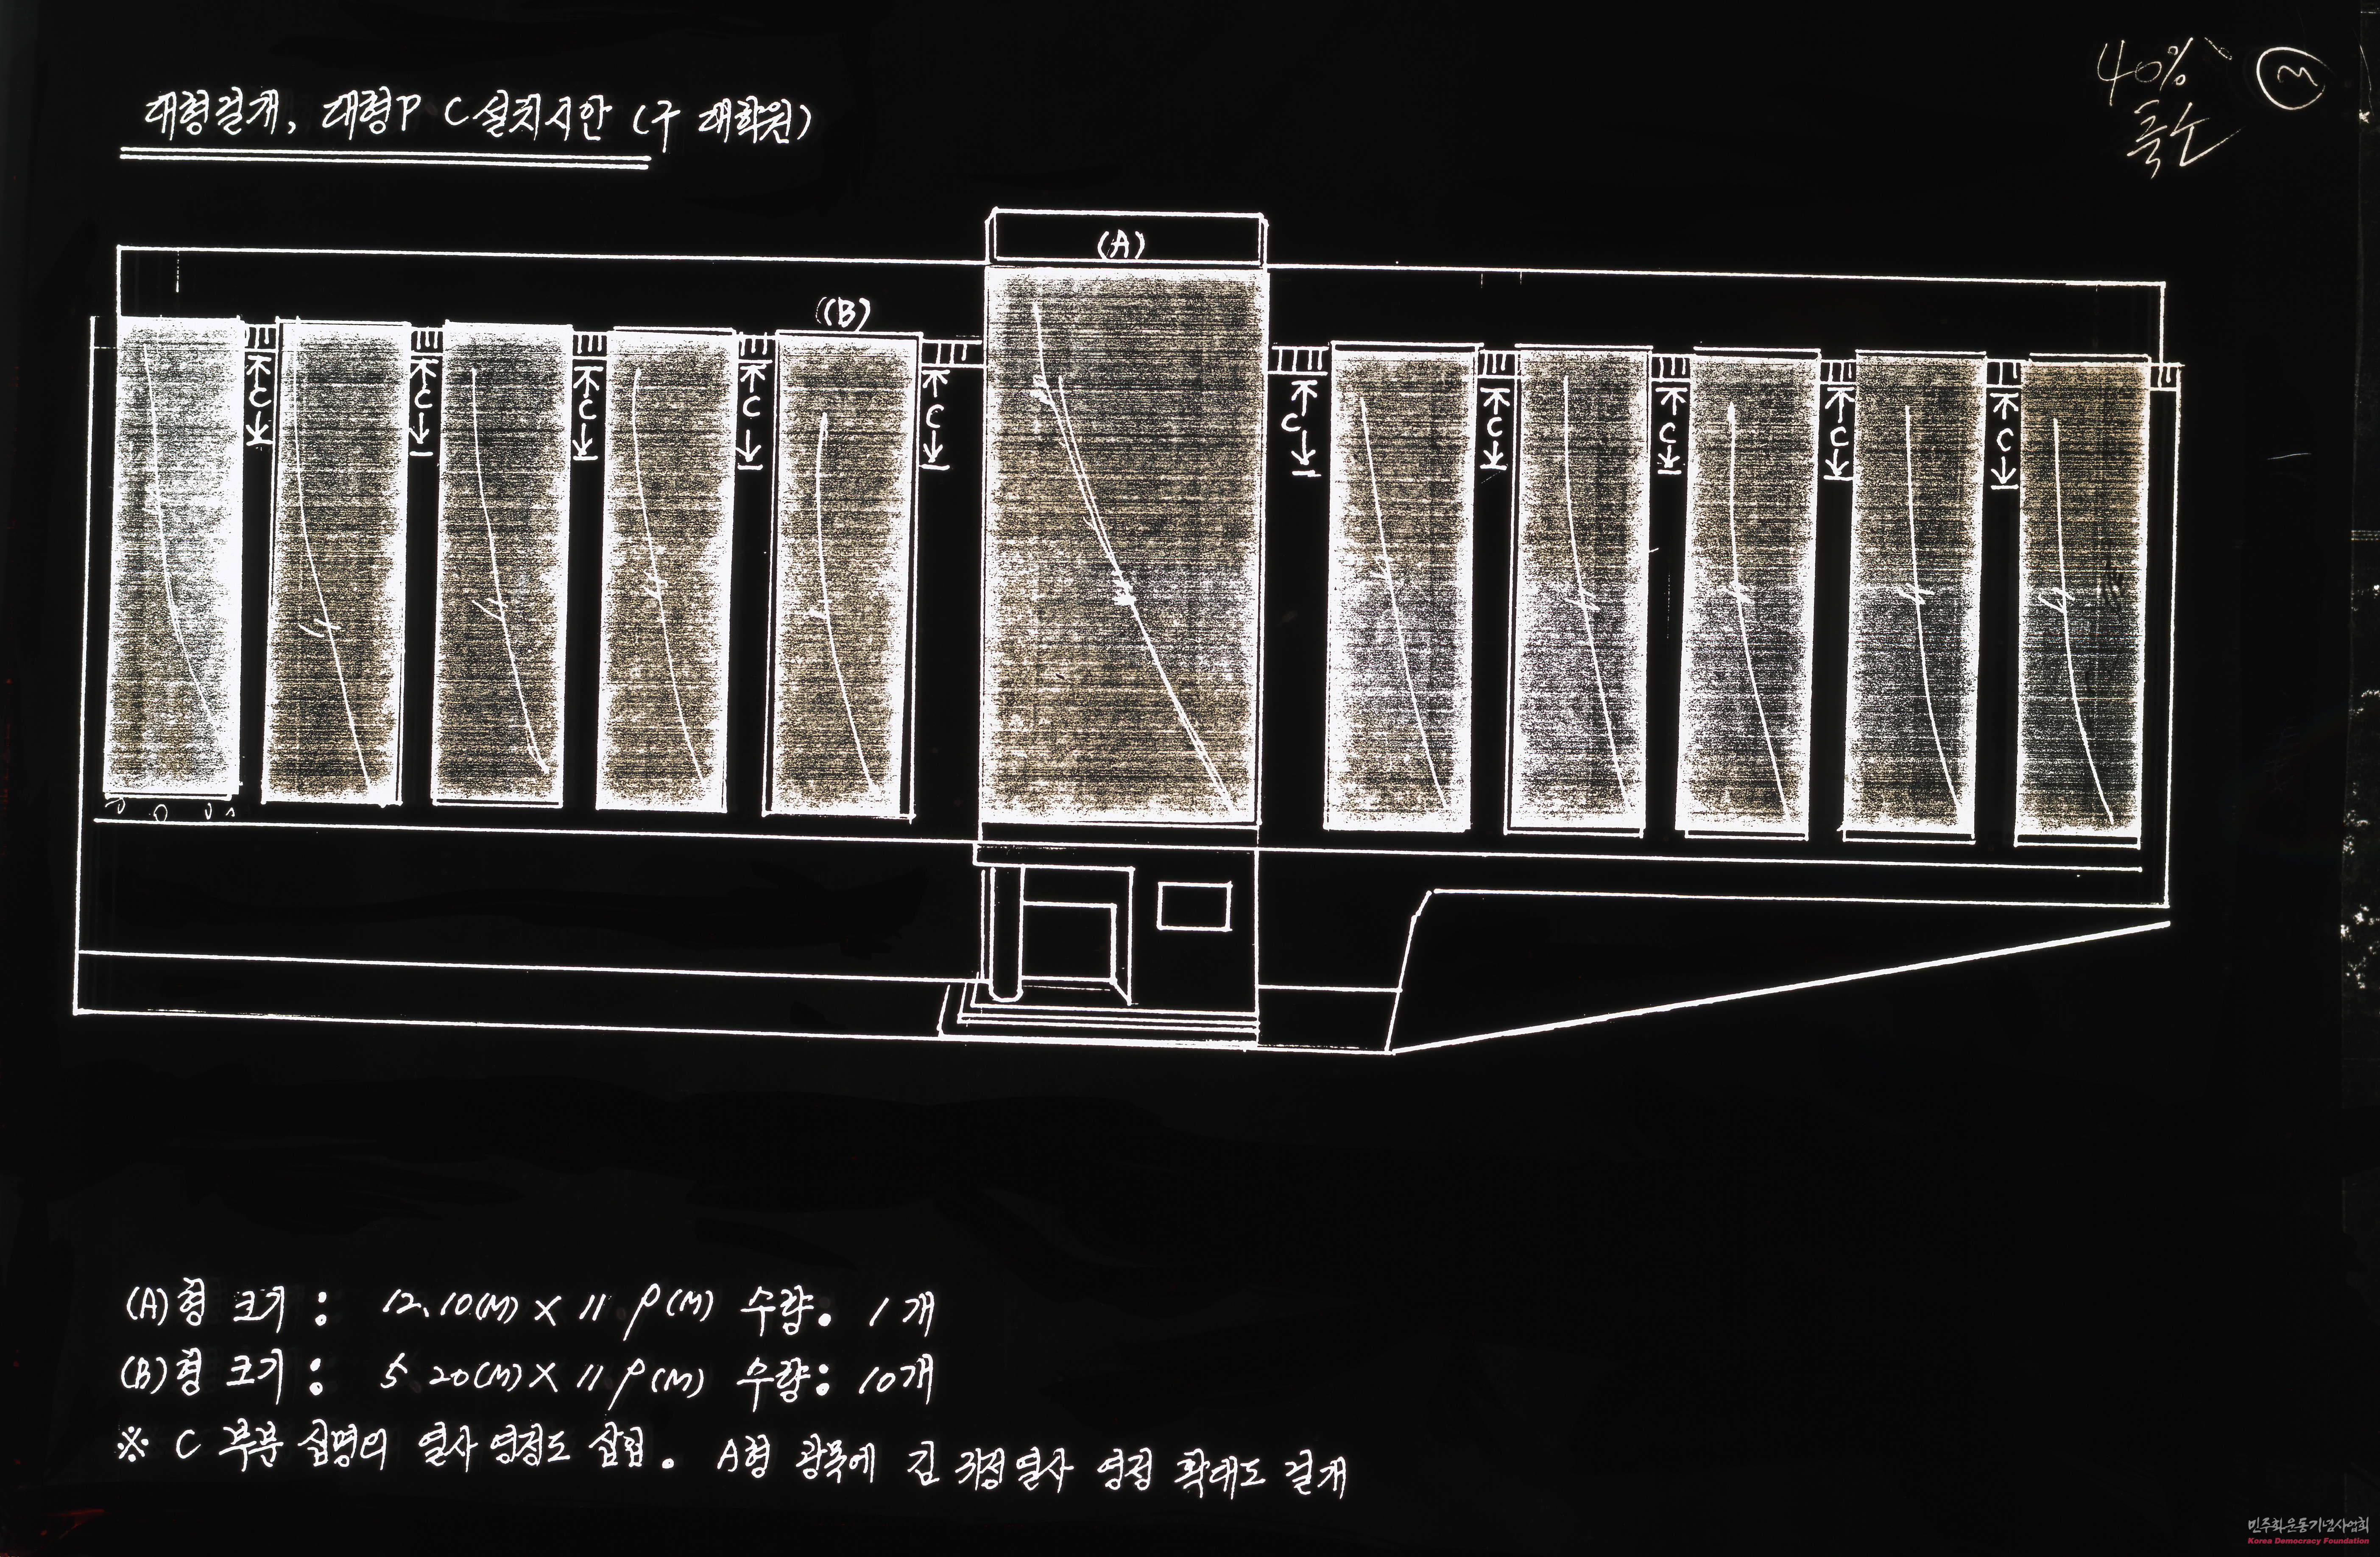 대형걸개, 대형P C설치시안 (구 대학원)
40%
축소
3
(A)
(B)
C
C
C
C
C
C
C
C
C
C
(A)형 크기 : 12.10(M) X 11 P(M) 수량. 1개
(B)형 크기 : 5.20(M) X 11 P(M) 수량: 10개
※ C 부분 십명의 열사 영정도 삽입. A형 광목에 김 귀정열사 영정 확대도 걸개
민주화운동기념사업회
Korea Democracy Foundation